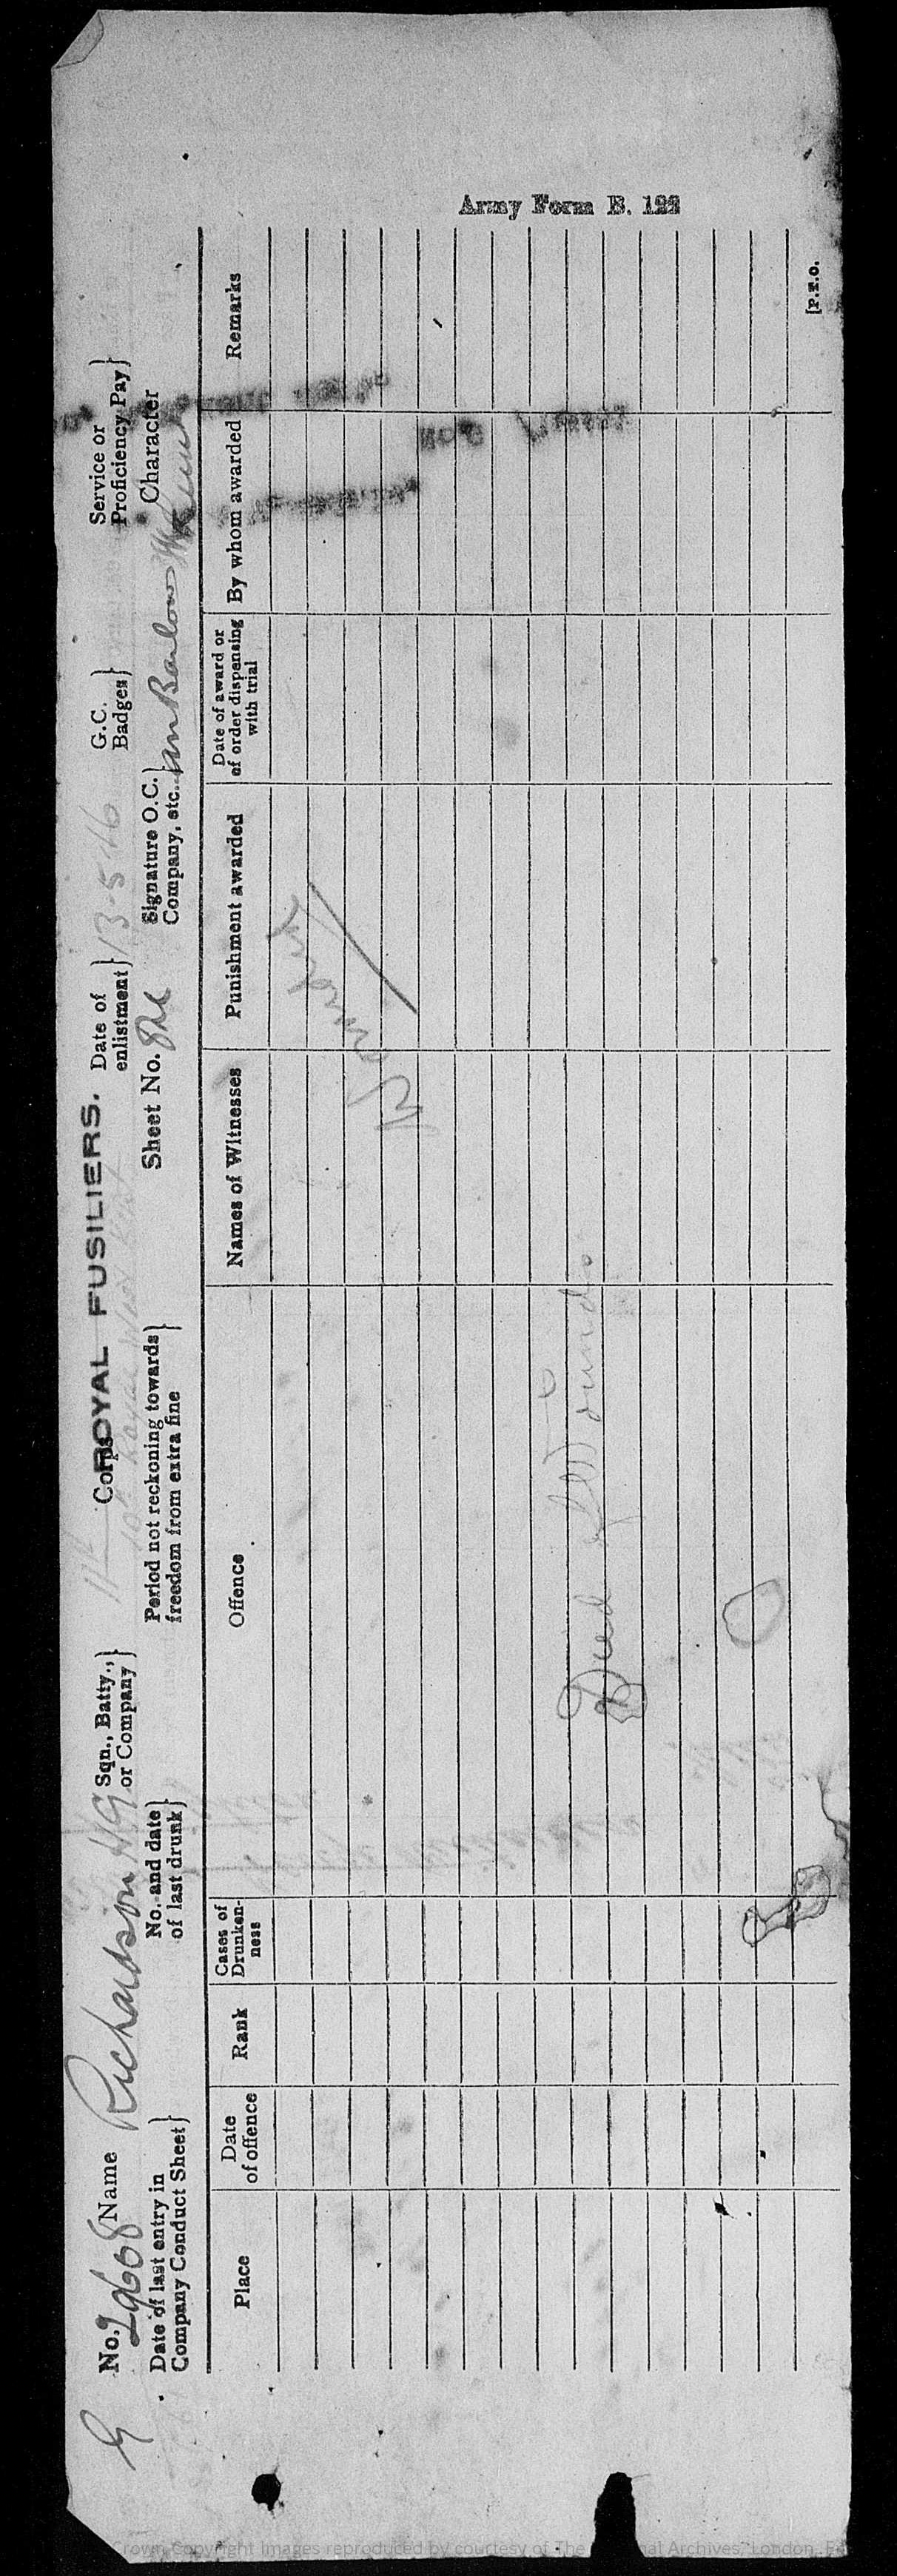 Army Form B. 122
G No. 29608 Name Richardson H G Sqn., Batty., or Company} 11th Corps ROYAL FUSILIERS. Date of enlistment} 13-5-16 G.C. Badges} Service or Proficiency Pay}
10th Royal West Kent
Date of last entry in Company Conduct Sheet} No. and date of last drunk} Period not reckoning towards freedom from extra fine} Sheet No. Signature O.C. Company, etc. Character
Place
Date of offence
Rank
Cases of Drunken-ness
Offence
Names of Witnesses
Punishment awarded
Date of award or of order dispensing with trial
By whom awarded
Remarks
Died of Wounds
[P.T.O.
Crown Copyright Images reproduced by courtesy of The National Archives, London,